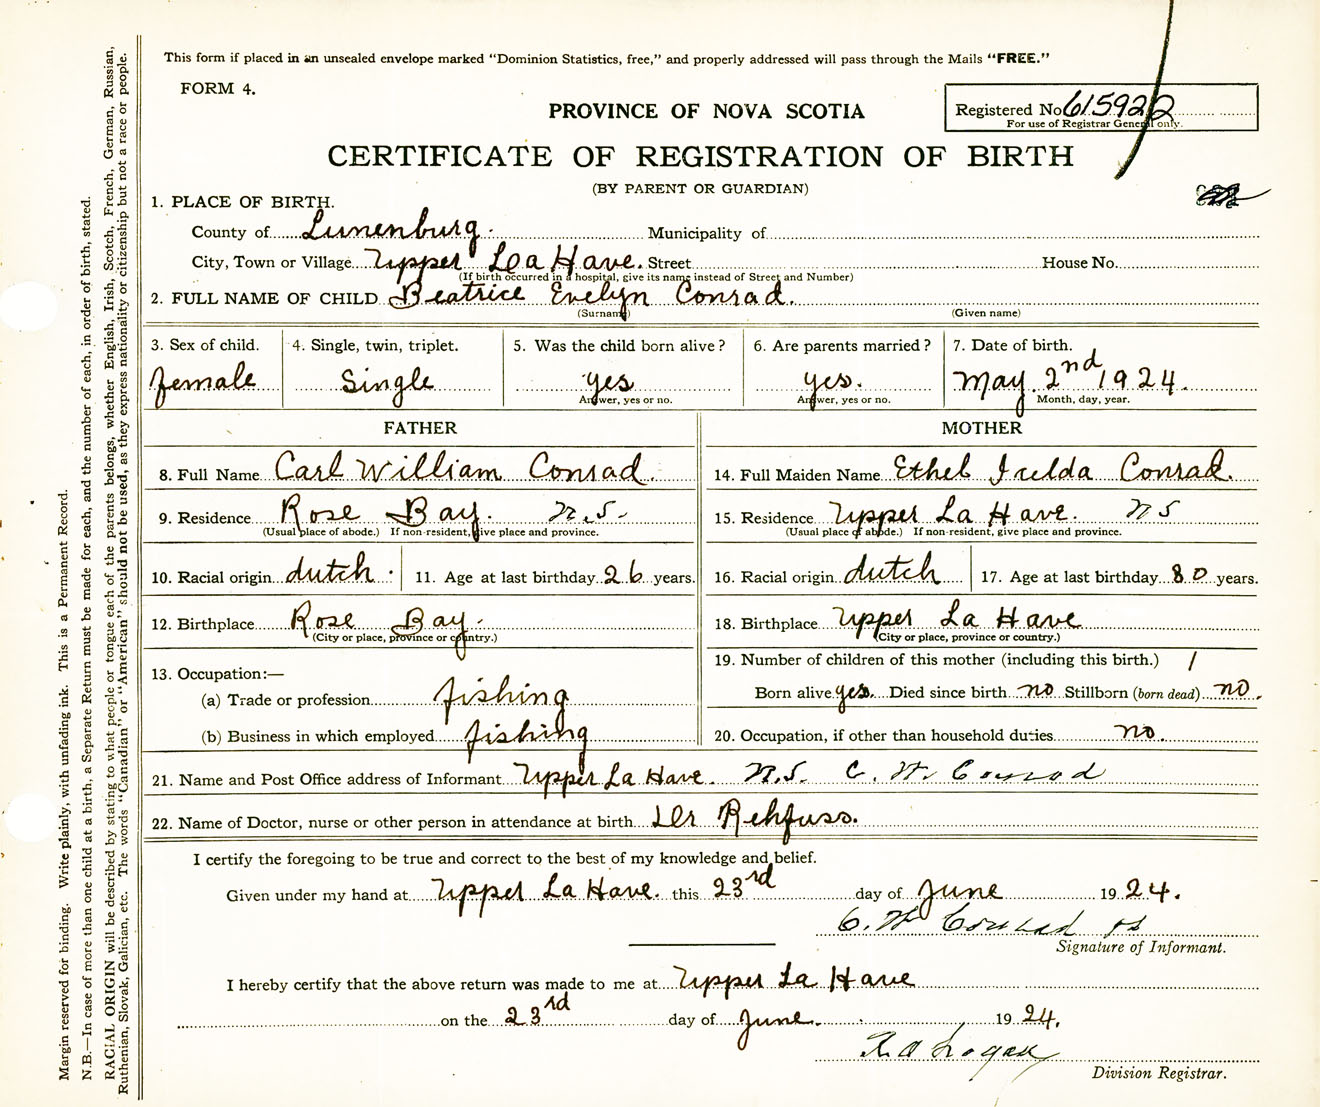 This form if placed in an unsealed envelope marked "Dominion Statistics, free," and properly addressed will pass through the Mails "FREE."
FORM 4.
PROVINCE OF NOVA SCOTIA
Registered No 615922
For use of Registrar General only.
CERTIFICATE OF REGISTRATION OF BIRTH
(BY PARENT OR GUARDIAN)
1. PLACE OF BIRTH.
County of Lunenburg. Municipality of
City, Town or Village Upper La Have. Street House No.
(If birth occurred in a hospital, give its name instead of Street and Number)
2. FULL NAME OF CHILD Beatrice Evelyn Conrad.
(Surname) (Given name)
3. Sex of child. 4. Single, twin, triplet. 5. Was the child born alive? 6. Are parents married? 7. Date of birth.
female Single yes yes. May 2nd 1924.
Answer, yes or no. Answer, yes or no. Month, day, year.
FATHER
8. Full Name Carl William Conrad.
9. Residence Rose Bay. N.S.
(Usual place of abode.) If non-resident, give place and province.
10. Racial origin dutch 11. Age at last birthday 26 years.
12. Birthplace Rose Bay.
(City or place, province or country.)
13. Occupation:—
(a) Trade or profession fishing
(b) Business in which employed fishing
MOTHER
14. Full Maiden Name Ethel Irelda Conrad.
15. Residence Upper La Have. N S
(Usual place of abode.) If non-resident, give place and province.
16. Racial origin dutch 17. Age at last birthday 80 years.
18. Birthplace Upper La Have
(City or place, province or country.)
19. Number of children of this mother (including this birth.) 1
Born alive yes. Died since birth no Stillborn (born dead) no.
20. Occupation, if other than household duties no.
21. Name and Post Office address of Informant Upper La Have. N.S. C. W. Conrad
22. Name of Doctor, nurse or other person in attendance at birth Dr Rehfuss.
I certify the foregoing to be true and correct to the best of my knowledge and belief.
Given under my hand at Upper La Have. this 23rd day of June 1924.
C. W Conrad
Signature of Informant.
I hereby certify that the above return was made to me at Upper La Have
on the 23rd day of June. 1924.
Division Registrar.
Margin reserved for binding. Write plainly, with unfading ink. This is a Permanent Record.
N.B.—In case of more than one child at a birth, a Separate Return must be made for each, and the number of each, in order of birth, stated.
RACIAL ORIGIN will be described by stating to what people or tongue each of the parents belongs, whether English, Irish, Scotch, French, German, Russian,
Ruthenian, Slovak, Galician, etc. The words "Canadian" or "American" should not be used, as they express nationality or citizenship but not a race or people.